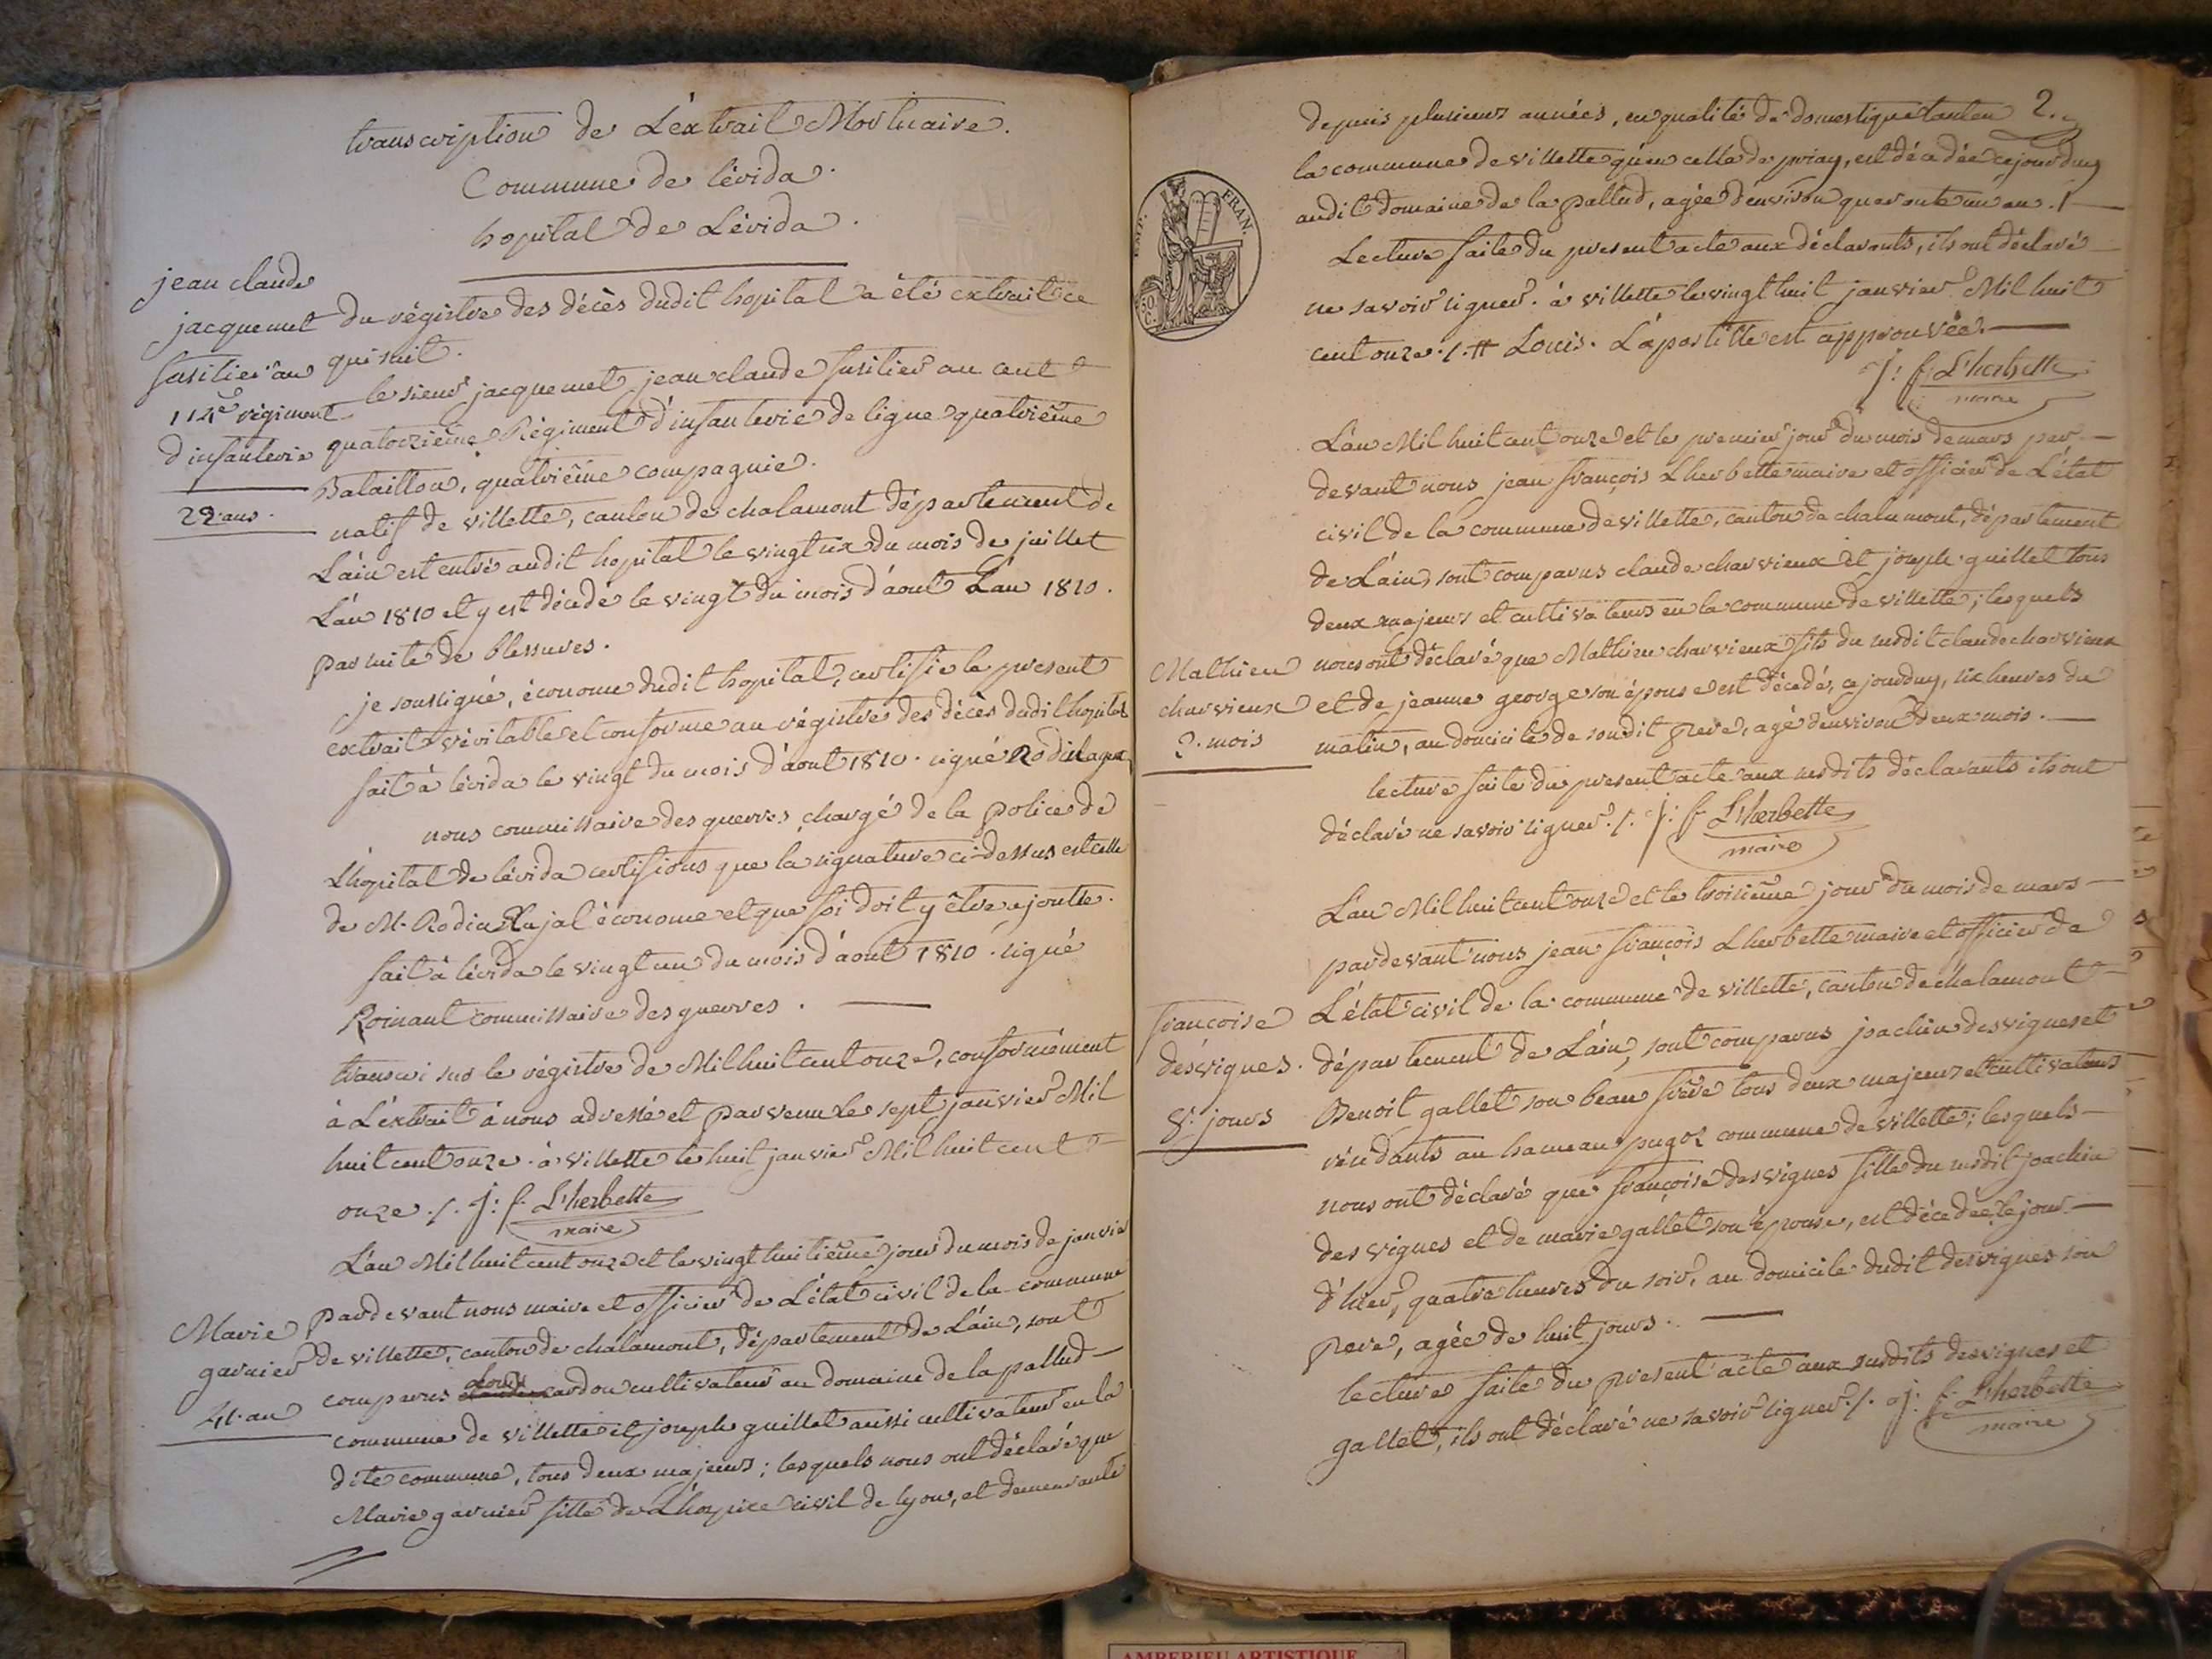 transcription de L'éxtrait Mortuaire.
Commune de lérida.
hopital de Lérida.
jean claude
jacquemet
fusilier au
114e régiment
d'infanterie
22 ans.
du régistre des décès dudit hopital a été extrait ce
qui suit.
le sieur jacquemet jean claude fusilier au cent
quatorzième Régiment d'infanterie de ligne quatrième
Bataillon, quatrième compagnie.
natif de villette, canton de chalamont département de
L'ain est entré audit hopital le vingt six du mois de juillet
L'an 1810 et y est décédé le vingt du mois d'aout L'an 1810.
par suite de blessures.
je soussigné, économe dudit hopital, certifie le present
extrait véritable et conforme au régistre des décès dudit hopital
fait à lérida le vingt du mois d'aout 1810. signé
nous commissaire des guerres chargé de la police de
L'hopital de lérida certifions que la signature ci-dessus est celle
de M. Rodia économe et que foi doit y être ajoutée.
fait à lérida le vingt un du mois d'aout 1810. signé
Roinant commissaire des guerres.
transcri sur le régistre de Mil huit cent onze, conformément
à L'éxtrait à nous adressé et parvenu Le sept janvier Mil
huit cent onze. à villette le huit janvier Mil huit cent
onze ./. J: f. L'herbette
maire
L'an Mil huit cent onze et le vingt huitième jour du mois de janvier
Marie
garnier
41. an
pardevant nous maire et officier de L'état civil de la commune
de villette, canton de chalamont, département de L'ain, sont
Louis
comparus cardon cultivateur au domaine de la pallud
commune de villette et joseph guillet aussi cultivateur en la
dite commune, tous deux majeurs; lesquels nous ont déclaré que
Marie garnier fille de L'hospice civil de lyon, et demeurante
2.
depuis plusieurs années, en qualité de domestique tant en
la commune de villette qu'en celle de priay, est décédée cejourduy
audit domaine de la pallud, agée d'environ quarante un an. /
EMP. FRAN.
50 C.
Lecture faite du present acte aux déclarants, ils ont déclaré
ne savoir signer. à villette le vingt huit janvier Mil huit
cent onze ./. # Louis. L'apostille est approuvée.
J: f. L'herbette
maire
L'an Mil huit cent onze et le premier jour du mois de mars par
devant nous jean françois Lherbette maire et officier de L'état
civil de la commune de villette, canton de chalamont, département
de L'ain, sont comparus claude charvieux et joseph guillet tous
deux majeurs et cultivateurs en la commune de villette; lesquels
Mathieu
charvieux
2. mois
nous ont déclaré que Mathieu charvieux fils du susdit claude charvieux
et de jeanne george son épouse est décédé, cejourduy, six heures du
matin, au domicile de sondit pere, agé d'environ deux mois.
lecture faite du present acte aux susdits déclarants ils ont
déclaré ne savoir signer ./. J: f. L'herbette
maire
L'an Mil huit cent onze et le troisième jour du mois de mars
pardevant nous jean françois Lherbette maire et officier de
françoise
désvignes.
8. jours
L'état civil de la commune de villette, canton de chalamont
département de L'ain, sont comparus joachin desvignes et
Benoit gallet son beau frère tous deux majeurs et cultivateurs
résidants au hameau pugoz commune de villette; lesquels
nous ont déclaré que françoise desvignes fille du susdit joachin
desvignes et de marie gallet son épouse, est décédée, le jour
d'hier, quatre heures du soir, au domicile dudit desvignes son
pere, agée de huit jours.
lecture faite du present acte aux susdits desvignes et
gallet, ils ont déclaré ne savoir signer ./. J: f. L'herbette
maire
AMBERIEU ARTISTIQUE